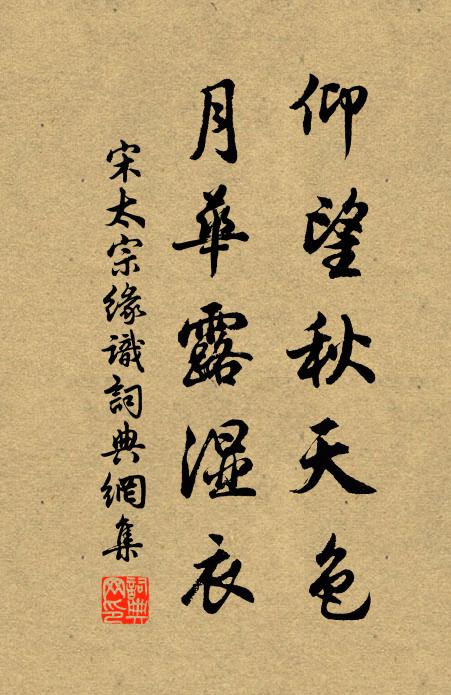 仰望秋天色
月華露濕衣
宋太宗緣識詞典網集
詞典网印